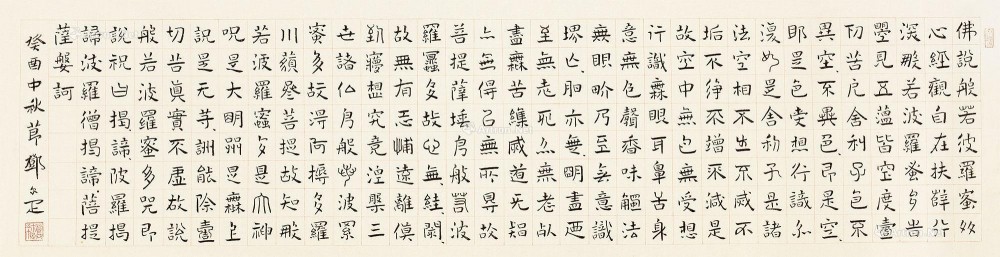 佛說般若波羅蜜多
心經觀自在菩薩行
深般若波羅蜜多時
曌見五蘊皆空度壹
切苦厄舍利子色不
異空不異色即是空
即是色受想行識亦
復如是舍利子是諸
法空相不生不滅不
垢不淨不增不減是
故空中無色無受想
行識無眼耳鼻舌身
意無色聲香味觸法
無眼界乃至無意識
界明亦無明盡迺
至無老死亦無老死
盡無苦集滅道无智
亦無得以無所得故
菩提薩埵依般若波
羅蜜多故心無罣礙
故無有恐怖遠離顛
到夢想究竟涅槃三
世諸仏依般若波羅
蜜多故得阿耨多羅
藐三菩提故知般
若波羅蜜多是大神
呪是大明呪是無上
呪是无等呪能除壹
切苦真實不虛故說
般若波羅蜜多咒即
說祝曰揭諦波羅揭
諦波羅僧揭諦菩提
薩婆訶
癸酉中秋節鄭